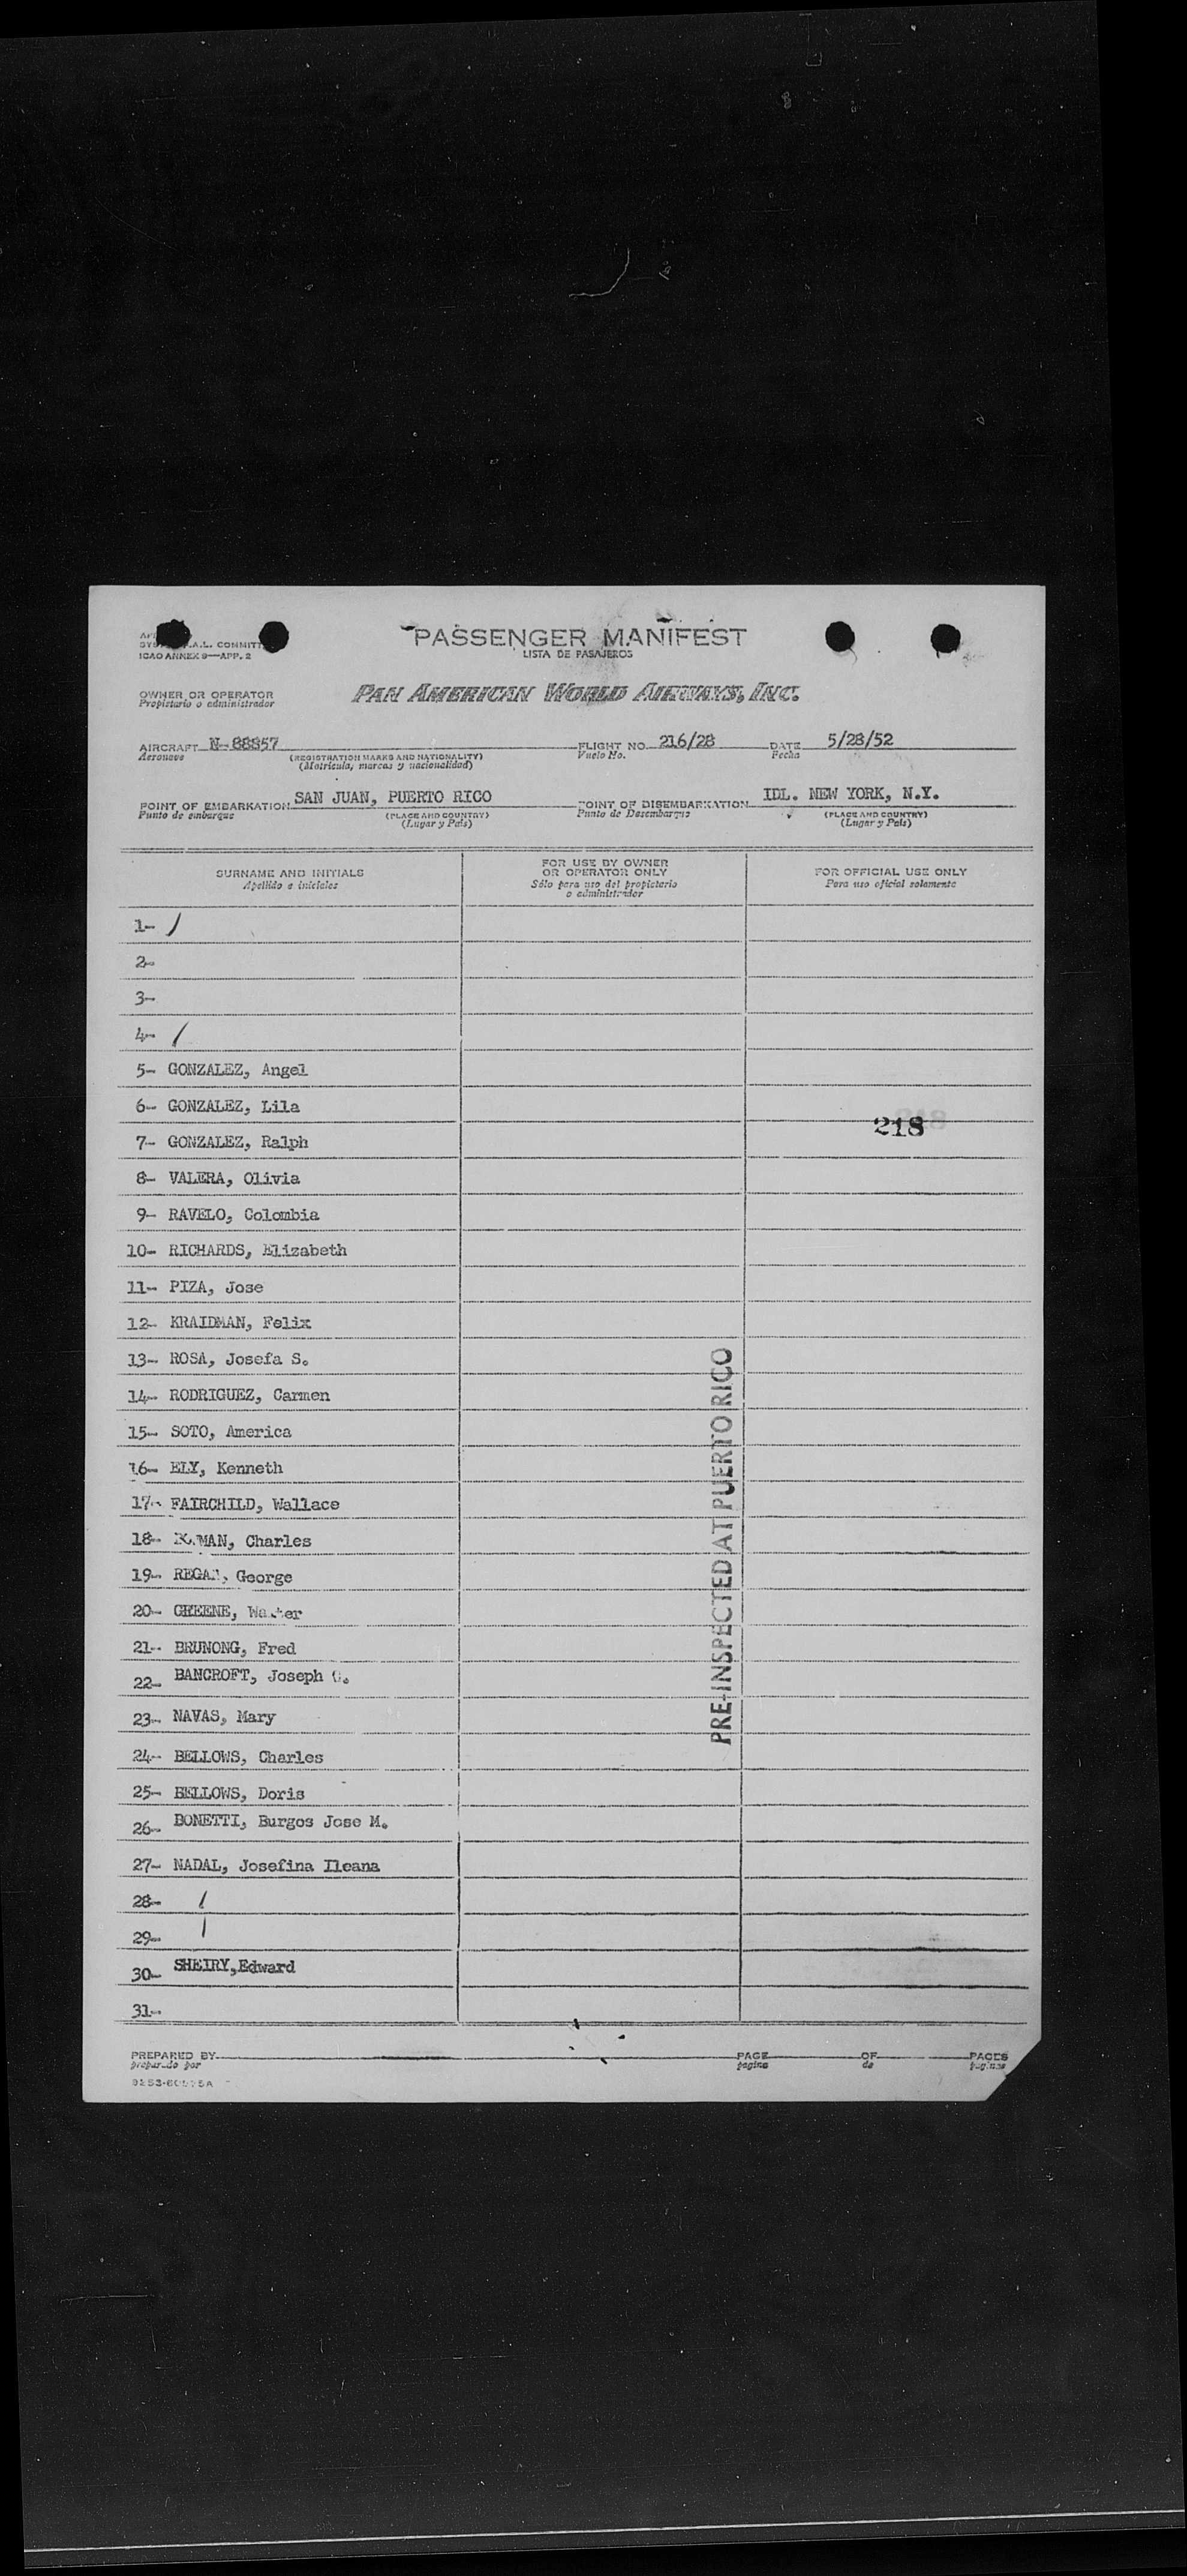 PASSENGER MANIFEST
LISTA DE PASAJEROS
A.L. COMMITT
ICAO ANNEX 9—APP. 2
OWNER OR OPERATOR
Propietario o administrador
PAN AMERICAN WORLD AIRWAYS, INC.
AIRCRAFT N-88857 FLIGHT NO. 216/28 DATE 5/28/52
Aeronave (REGISTRATION MARKS AND NATIONALITY) Vuelo No. Fecha
(Matricula, marcas y nacionalidad)
POINT OF EMBARKATION SAN JUAN, PUERTO RICO POINT OF DISEMBARKATION IDL. NEW YORK, N.Y.
Punto de embarque (PLACE AND COUNTRY) Punto de Desembarque (PLACE AND COUNTRY)
(Lugar y País) (Lugar y País)
SURNAME AND INITIALS
Apellido e iniciales
FOR USE BY OWNER
OR OPERATOR ONLY
Sólo para uso del propietario
o administrador
FOR OFFICIAL USE ONLY
Para uso oficial solamente
1- /
2-
3-
4- /
5- GONZALEZ, Angel
6- GONZALEZ, Lila
218
7- GONZALEZ, Ralph
8- VALERA, Olivia
9- RAVELO, Colombia
10- RICHARDS, Elizabeth
11- PIZA, Jose
12- KRAIDMAN, Felix
13- ROSA, Josefa S.
14- RODRIGUEZ, Carmen
15- SOTO, America
16- ELY, Kenneth
17- FAIRCHILD, Wallace
18- Charles
19- George
20- GREENE,
21- BRUNONG, Fred
22- BANCROFT, Joseph
23- NAVAS, Mary
24- BELLOWS, Charles
25- BELLOWS, Doris
26- BONETTI, Burgos Jose M.
27- NADAL, Josefina Ileana
28- /
29- /
30- SHEIRY,Edward
31-
PRE-INSPECTED AT PUERTO RICO
PREPARED BY PAGE OF PAGES
preparado por pagina de paginas